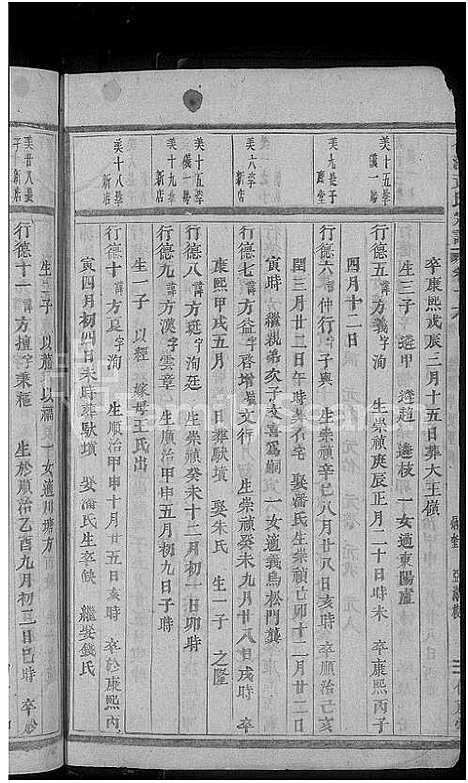 卒康熙戊辰三月十五日葬大王嶺
生三子 遜甲 遜趙 遜枝 一女適東陽盧
美十五公
儀一
行德五諱方義字洵 生崇禎庚辰正月二十日時未 卒康熙丙
四月十二日
美九長子
行德六 仲行字子與 生崇禎辛巳八月廿八日亥時 卒順治己亥
閏三月廿二日午時葬石宅 娶潘氏生崇禎己卯十二月廿二日
寅時 繼親弟亥子文喜為嗣 一女適義烏松門龔
美六季
新店
行德七諱方益字啓增號文行 生崇禎癸未九月廿八日戌時 卒
康熙甲戌五月 日葬馱墳 娶朱氏 生一子 之隆
美十五季
儀一
行德八諱方珽字洵廷 生崇禎癸未十二月初一日卯時
美十九季
新店
行德九諱方漢字雲章 生順治甲申五月初九日子時
生一子 以程 嫁母王氏出
美十八季
新店
行德十諱方夏字洵 生順治甲申十月廿五日亥時 卒於康熙丙
寅四月初四日未時葬馱墳 娶潘氏生卒缺 繼娶錢氏
生子 以 以福 一女適川塘方
美廿八長
子 新店
行德十一諱方擅字秉樞 生於順治乙酉九月初二日巳時 卒於